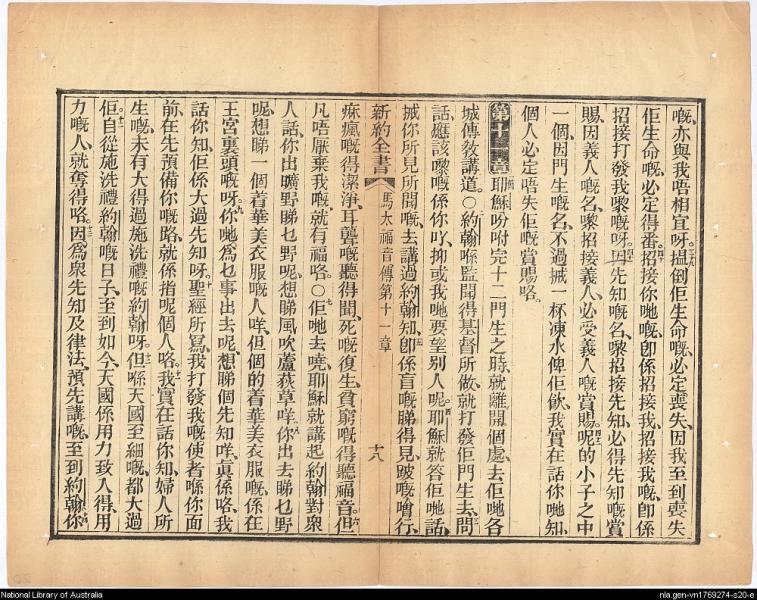 嘅、亦與我唔相宜呀。揾倒佢生命嘅、必定喪失、因我至到喪失
佢生命嘅、必定得番。招接你哋嘅、卽係招接我、招接我嘅、卽係
招接打發我嚟嘅呀。因先知嘅名、嚟招接先知、必得先知嘅賞
賜、因義人嘅名、嚟招接義人、必受義人嘅賞賜。呢的小子之中
一個、因門生嘅名、不過搣一杯凍水俾佢飲、我實在話你哋知、
個人必定唔失佢嘅賞賜咯。
第十一章 耶穌吩咐完十二門生之時、就離開個處、去佢哋各
城傳敎講道。○約翰喺監聞得基督所做、就打發佢門生去、問
話、應該嚟嘅係你吖、抑或我哋要望別人呢。耶穌就答佢哋話、
搣你所見所聞嘅、去講過約翰知、卽係盲嘅睇得見、跛嘅噲行、
新約全書 馬太福音傳第十一章 十八
痳瘋嘅得潔淨、耳聾嘅聽得聞、死嘅復生、貧窮嘅得聽福音。但
凡唔厭棄我嘅、就有福咯。○佢哋去嘵、耶穌就講起約翰對衆
人話、你出曠野睇乜野呢、想睇風吹蘆荻草咩。你出去睇乜野
呢、想睇一個着華美衣服嘅人咩、但個的着華美衣服嘅、係在
王宮裏頭嘅呀。你哋爲乜事出去呢、想睇個先知咩、眞係咯、我
話你知、佢係大過先知呀。聖經所寫、我打發我嘅使者喺你面
前、在先預備你嘅路、就係指呢個人咯。我實在話你知、婦人所
生嘅、未有大得過施洗禮嘅約翰呀。但喺天國至細嘅、都大過
佢。自從施洗禮約翰嘅日子、至到如今、天國係用力致人得、用
力嘅人、就奪得咯。因爲衆先知及律法、預先講嘅、至到約翰你
National Library of Australia
nla.gen-vn1769274-s20-e